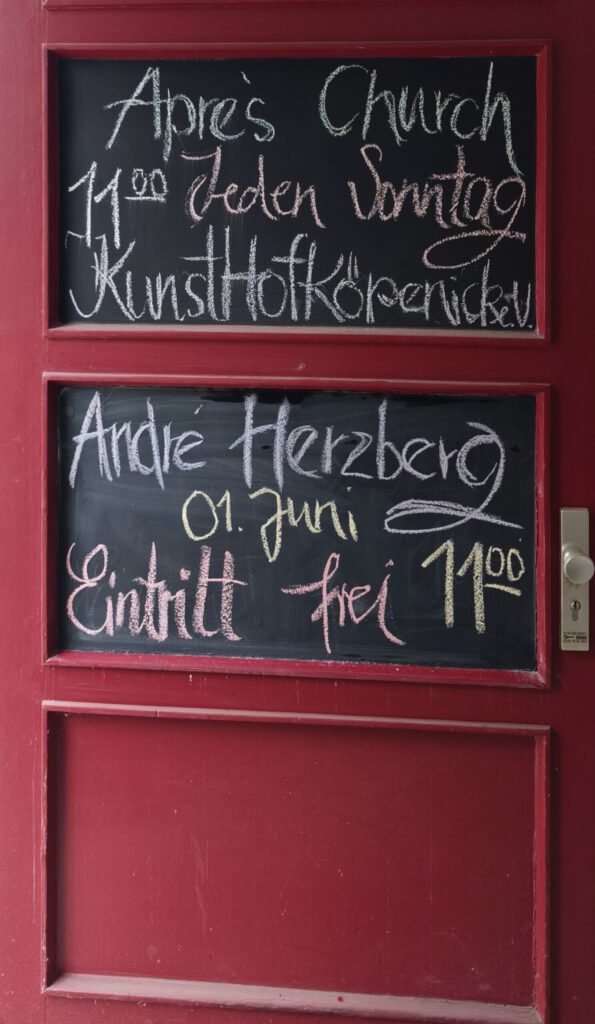 Aprés Church
11⁰⁰ Jeden Sonntag
KunstHofKöpenick e.V.
André Herzberg
01. Juni
Eintritt frei 11⁰⁰